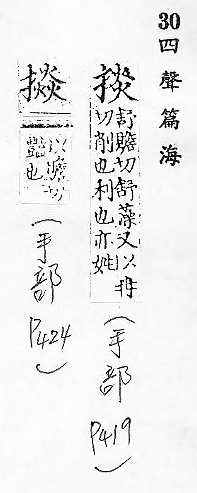 30四聲篇海
掞
舒贍切舒藻又以冉
切削也利也亦姓
(手部
P419)
掞
以贍切
豔也
(手部
P424)